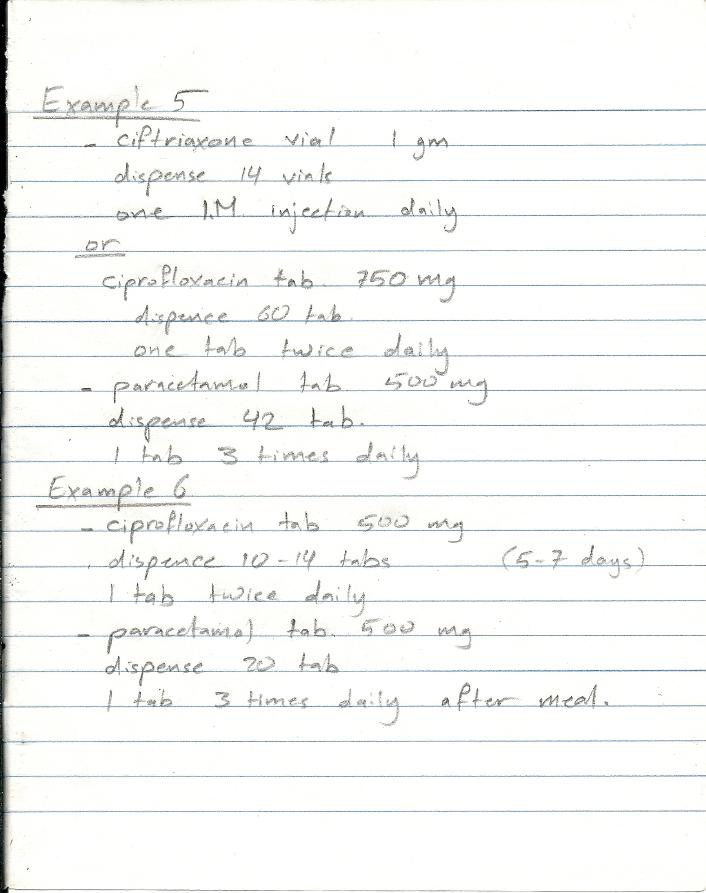 Example 5
- ciftriaxone vial 1 gm
dispense 14 vials
one I.M injection daily
or
ciprofloxacin tab. 750 mg
dispence 60 tab.
one tab twice daily
- paracetamol tab 500 mg
dispense 42 tab.
1 tab 3 times daily
Example 6
- ciprofloxacin tab 500 mg
dispence 10-14 tabs (5-7 days)
1 tab twice daily
- paracetamol tab. 500 mg
dispense 20 tab
1 tab 3 times daily after meal.